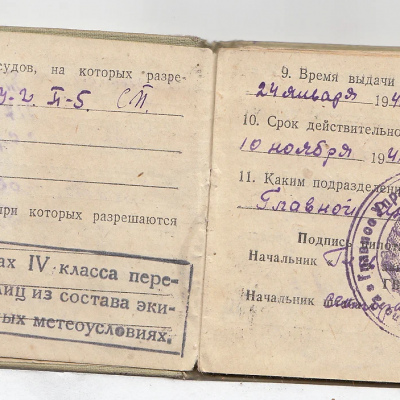 судов, на которых разре-
У-2 П-5 СП
при которых разрешаются
ах IV класса пере-
лиц из состава эки-
ных метеоусловиях.
9. Время выдачи
24 января 194
10. Срок действительно
10 ноября 194
11. Каким подразделени
Главной
Подпись
Начальник
Начальник
Главное Упра